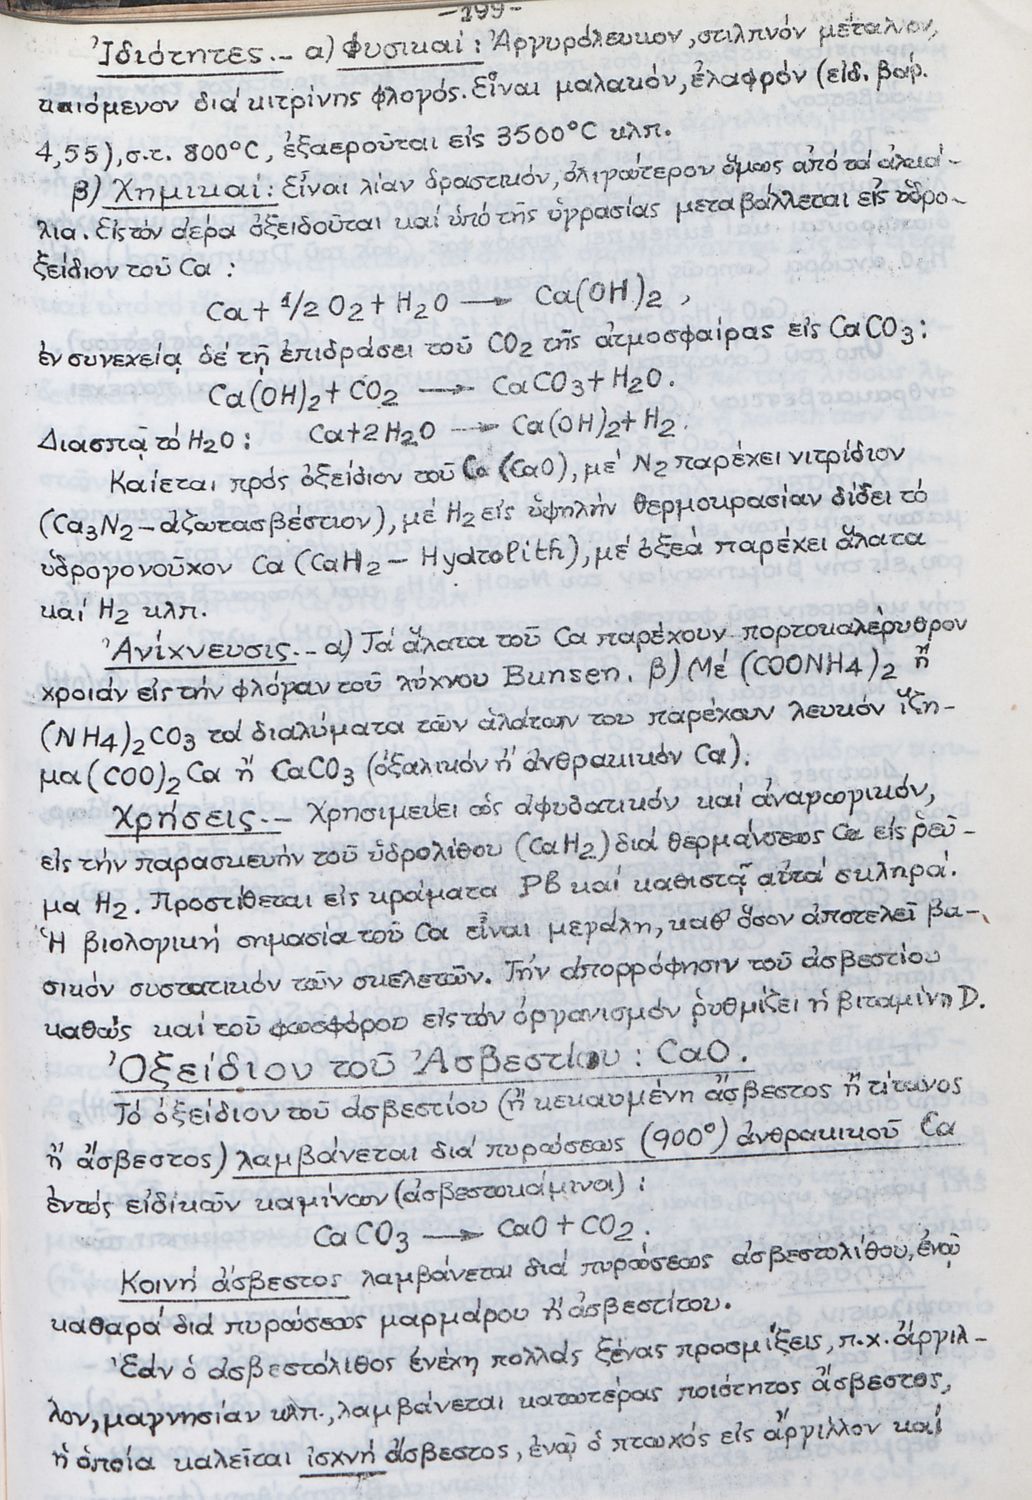 -199-
Ἰδιότητες.- α) Φυσικαί: Ἀργυρόλευκον, στιλπνόν μέταλλον,
καιόμενον διά κιτρίνης φλογός. Εἶναι μαλακόν, ἐλαφρόν (εἰδ. βάρ.
4,55), σ.τ. 800°C, ἐξαεροῦται εἰς 3500°C κλπ.
β) Χημικαί: Εἶναι λίαν δραστικόν, ὀλιγώτερον ὅμως ἀπό τά ἀλκά-
λια. Εἰς τόν ἀέρα ὀξειδοῦται καί ὑπό τῆς ὑγρασίας μεταβάλλεται εἰς ὑδρο-
ξείδιον τοῦ Ca:
Ca + 1/2 O2 + H2O → Ca(OH)2,
ἐν συνεχείᾳ δέ τῇ ἐπιδράσει τοῦ CO2 τῆς ἀτμοσφαίρας εἰς CaCO3:
Ca(OH)2 + CO2 → CaCO3 + H2O.
Διασπᾷ τό H2O: Ca + 2H2O → Ca(OH)2 + H2.
Καίεται πρός ὀξείδιον τοῦ Ca (CaO), μέ N2 παρέχει νιτρίδιον
(Ca3N2 - ἀζωτασβέστιον), μέ H2 εἰς ὑψηλήν θερμοκρασίαν δίδει τό
ὑδρογονοῦχον Ca (CaH2 - Hydrolith), μέ ὀξέα παρέχει ἅλατα
καί H2 κλπ.
Ἀνίχνευσις.- α) Τά ἅλατα τοῦ Ca παρέχουν πορτοκαλέρυθρον
χροιάν εἰς τήν φλόγαν τοῦ λύχνου Bunsen. β) Μέ (COONH4)2 ἤ
(NH4)2CO3 τά διαλύματα τῶν ἁλάτων του παρέχουν λευκόν ἵζη-
μα (COO)2 Ca ἤ CaCO3 (ὀξαλικόν ἤ ἀνθρακικόν Ca).
Χρήσεις.- Χρησιμεύει ὡς ἀφυδατικόν καί ἀναγωγικόν,
εἰς τήν παρασκευήν τοῦ ὑδρολίθου (CaH2) διά θερμάνσεως Ca εἰς ῥεῦ-
μα H2. Προστίθεται εἰς κράματα Pb καί καθιστᾷ αὐτά σκληρά.
Ἡ βιολογική σημασία τοῦ Ca εἶναι μεγάλη, καθ' ὅσον ἀποτελεῖ βα-
σικόν συστατικόν τῶν σκελετῶν. Τήν ἀπορρόφησιν τοῦ ἀσβεστίου
καθώς καί τοῦ φωσφόρου εἰς τόν ὀργανισμόν ῥυθμίζει ἡ βιταμίνη D.
Ὀξείδιον τοῦ Ἀσβεστίου: CaO.
Τό ὀξείδιον τοῦ ἀσβεστίου (ἤ κεκαυμένη ἄσβεστος ἤ τίτανος
ἤ ἄσβεστος) λαμβάνεται διά πυρώσεως (900°) ἀνθρακικοῦ Ca
ἐντός εἰδικῶν καμίνων (ἀσβεστοκάμινοι):
CaCO3 → CaO + CO2.
Κοινή ἄσβεστος λαμβάνεται διά πυρώσεως ἀσβεστολίθου, ἐνῷ
καθαρά διά πυρώσεως μαρμάρου ἤ ἀσβεστίτου.
Ἐάν ὁ ἀσβεστόλιθος ἐνέχῃ πολλάς ξένας προσμίξεις, π.χ. ἄργιλ-
λον, μαγνησίαν κλπ., λαμβάνεται κατωτέρας ποιότητος ἄσβεστος,
ἡ ὁποία καλεῖται ἰσχνή ἄσβεστος, ἐνῷ ὁ πτωχός εἰς ἄργιλλον καί